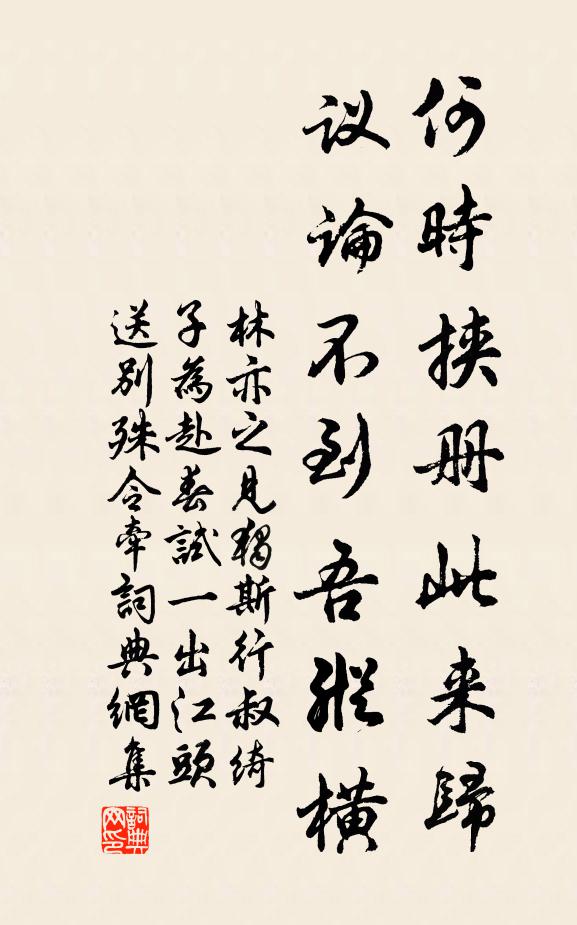 何時挾册此来歸
议論不到吾縱橫
林亦之見獨斯行叔綺
子為赴春試一出江頭
送别殊令牽詞典網集
詞典网印